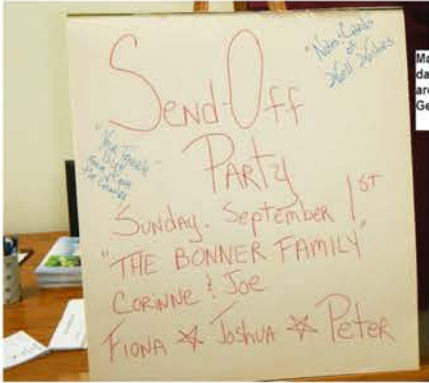 "Note Cards
of
Well Wishes
Send-Off
Party
"Your Favorite
Dish
Sunday. September 1ST
"THE BONNER FAMILY"
Corinne & Joe
Fiona ☆ Joshua ☆ Peter
Ma
da
are
Ge